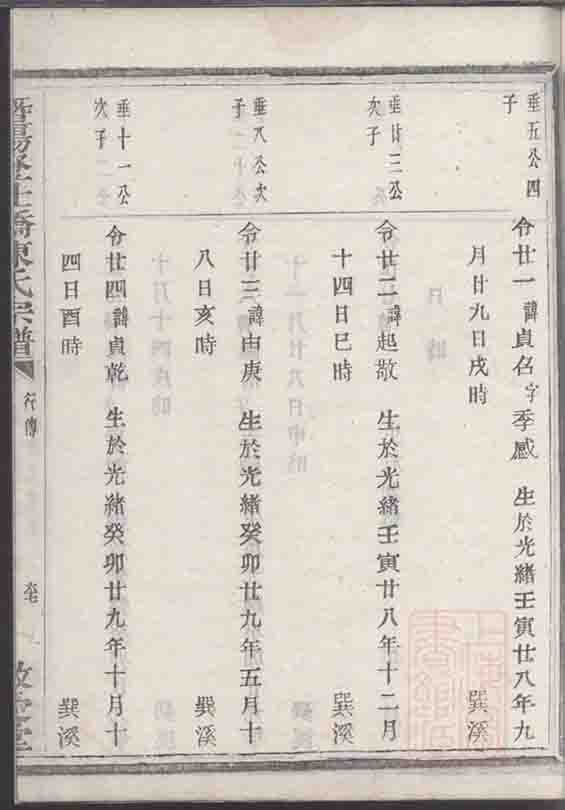 垂五公四
子
令廿一諱貞名字季感 生於光緒壬寅廿八年九
月廿九日戌時 巽溪
垂廿三公
次子
令廿二諱起敬 生於光緒壬寅廿八年十二月
十四日巳時 巽溪
垂八公次
子
令廿三諱由庚 生於光緒癸卯廿九年五月十
八日亥時 巽溪
垂十一公
次子
令廿四諱貞乾 生於光緒癸卯廿九年十月十
四日酉時 巽溪
陳氏宗譜
行傳